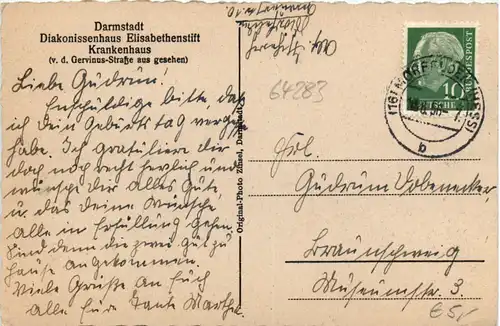 Darmstadt
Diakonissenhaus Elisabethenstift
Krankenhaus
(v. d. Gervinus-Straße aus gesehen)
Liebe Gudrun!
Entschuldige bitte, daß
ich dein Geburtstag
habe. Ich gratuliere dir
doch noch recht herzlich und
wünsche dir Alles Gute
u. daß deine Wünsche
alle in Erfüllung gehen.
Sind denn die zwei gut zu
Hause angekommen.
Viele Grüße an Euch
Alle Eure Tante Marthe.
Original-Photo Zinsel, Darmstadt
64283
10
DEUTSCHE BUNDESPOST
(16) MÖRFELDEN
b
Frl.
Gudrun
Braunschweig
Museumstr. 3